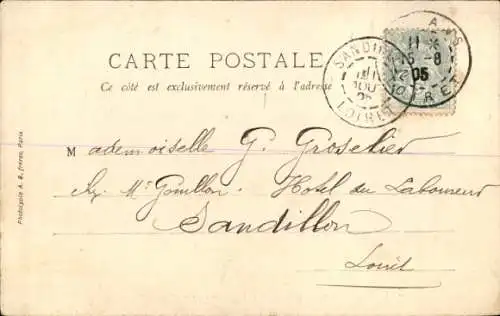 CARTE POSTALE
Ce côté est exclusivement réservé à l'adresse
SANDILLON
11
AOUT
05
LOIRET
11
15 - 8
05
LOIRET
Mademoiselle G. Groselier
chez Mr Gouillon. Hotel du Laboureur
Sandillon
Loiret
Phototypie A. B. frères, Paris